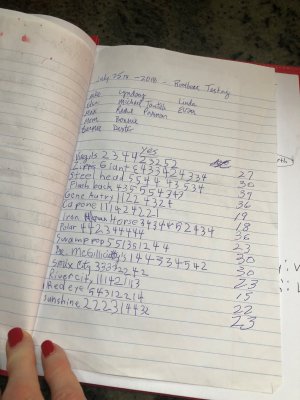 July 25th - 2016 - Rootbeer Tasting
Mike Lyndsay
John Michael Linda
Max Rachel Parman Evan
Mom Bonnie
George Dexter
Yes
Virgils 2 3 4 4 2 3 2 5 2 27
Zippy Giant 5 4 3 3 4 2 4 3 3 4 30
Steel head 5 5 4 4 4 3 5 3 4 37
Flash back 4 3 5 5 5 4 7 4 7 36
Gene Autry 1 1 2 2 4 3 2 4 19
Capone 1 1 1 4 2 4 2 2 1 18
Iron Horse 3 4 3 4 4 5 2 4 3 4 36
Polar 4 4 2 3 4 4 4 4 4 23
Swamp pop 5 5 1 3 5 1 2 4 4 30
Dr. McGillicuddy's 1 4 4 3 3 4 5 4 2 30
Sioux City 3 3 3 3 2 2 4 2 23
River city 1 1 1 4 2 1 1 3 15
Red eye 5 4 3 1 2 2 1 4 22
Sunshine 2 2 2 3 1 4 4 3 2 23